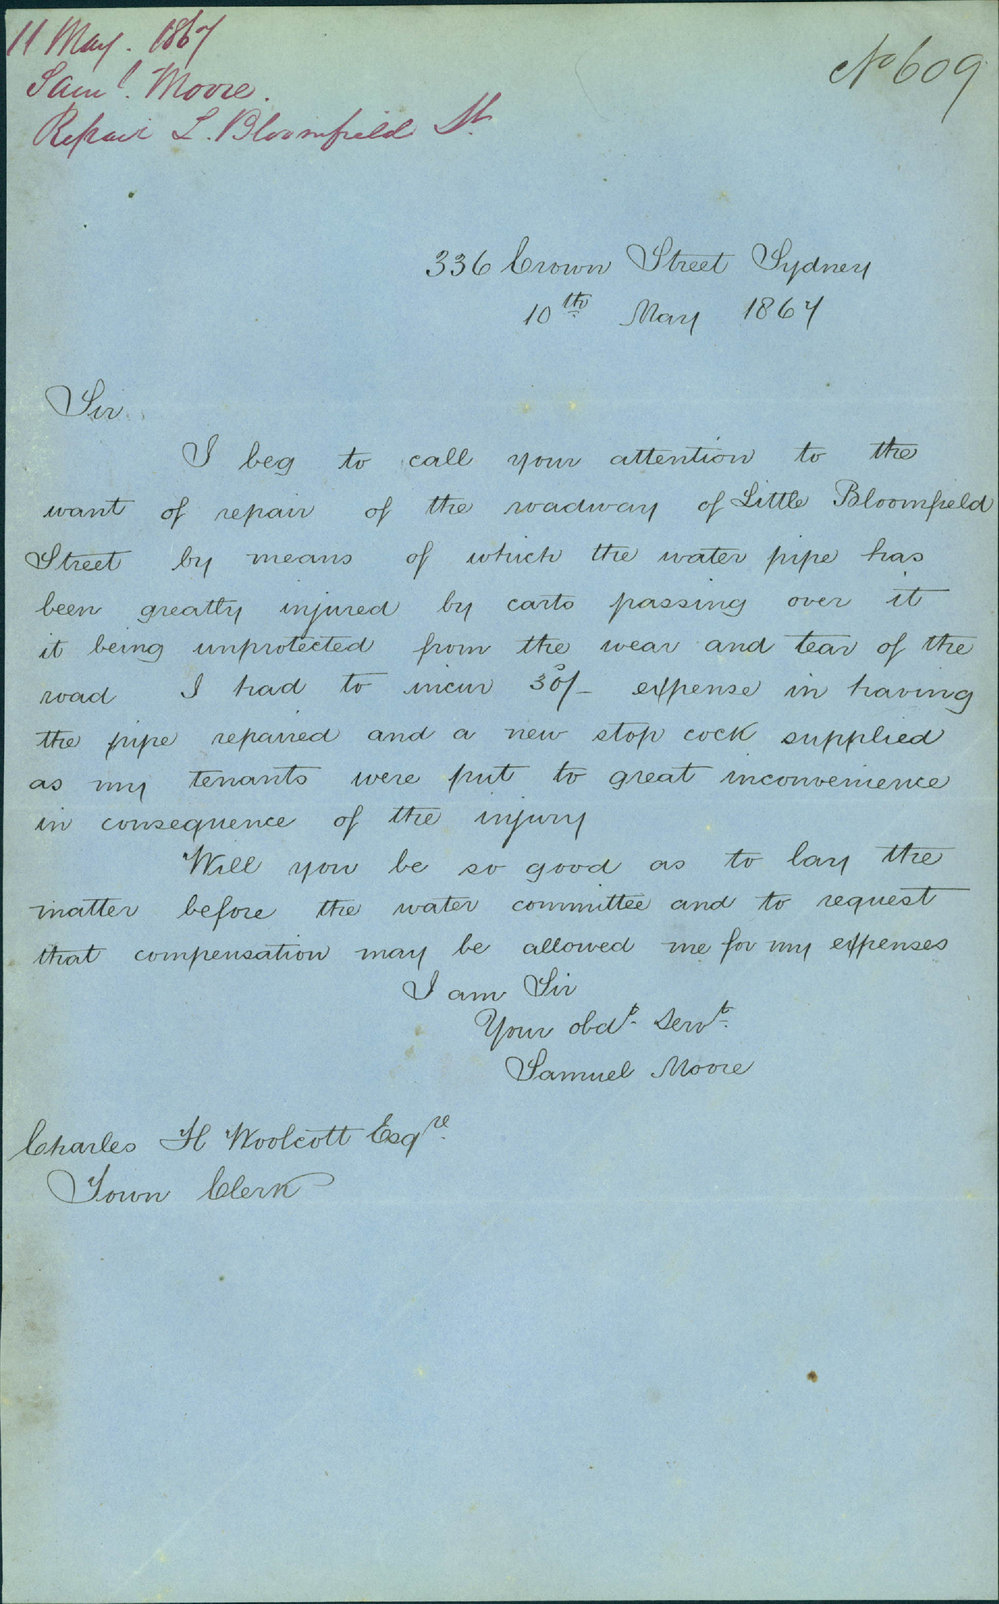 11 May. 1867
Saml. Moore.
Repair L. Bloomfield St.
No 609
336 Crown Street Sydney
10th May 1867
Sir
I beg to call your attention to the
want of repair of the roadway of Little Bloomfield
Street by means of which the water pipe has
been greatly injured by carts passing over it
it being unprotected from the wear and tear of the
road I had to incur 30s/- expense in having
the pipe repaired and a new stop cock supplied
as my tenants were put to great inconvenience
in consequence of the injury
Will you be so good as to lay the
matter before the water committee and to request
that compensation may be allowed me for my expenses
I am Sir
Your obdt. Servt.
Samuel Moore
Charles H Woolcott Esqre.
Town Clerk